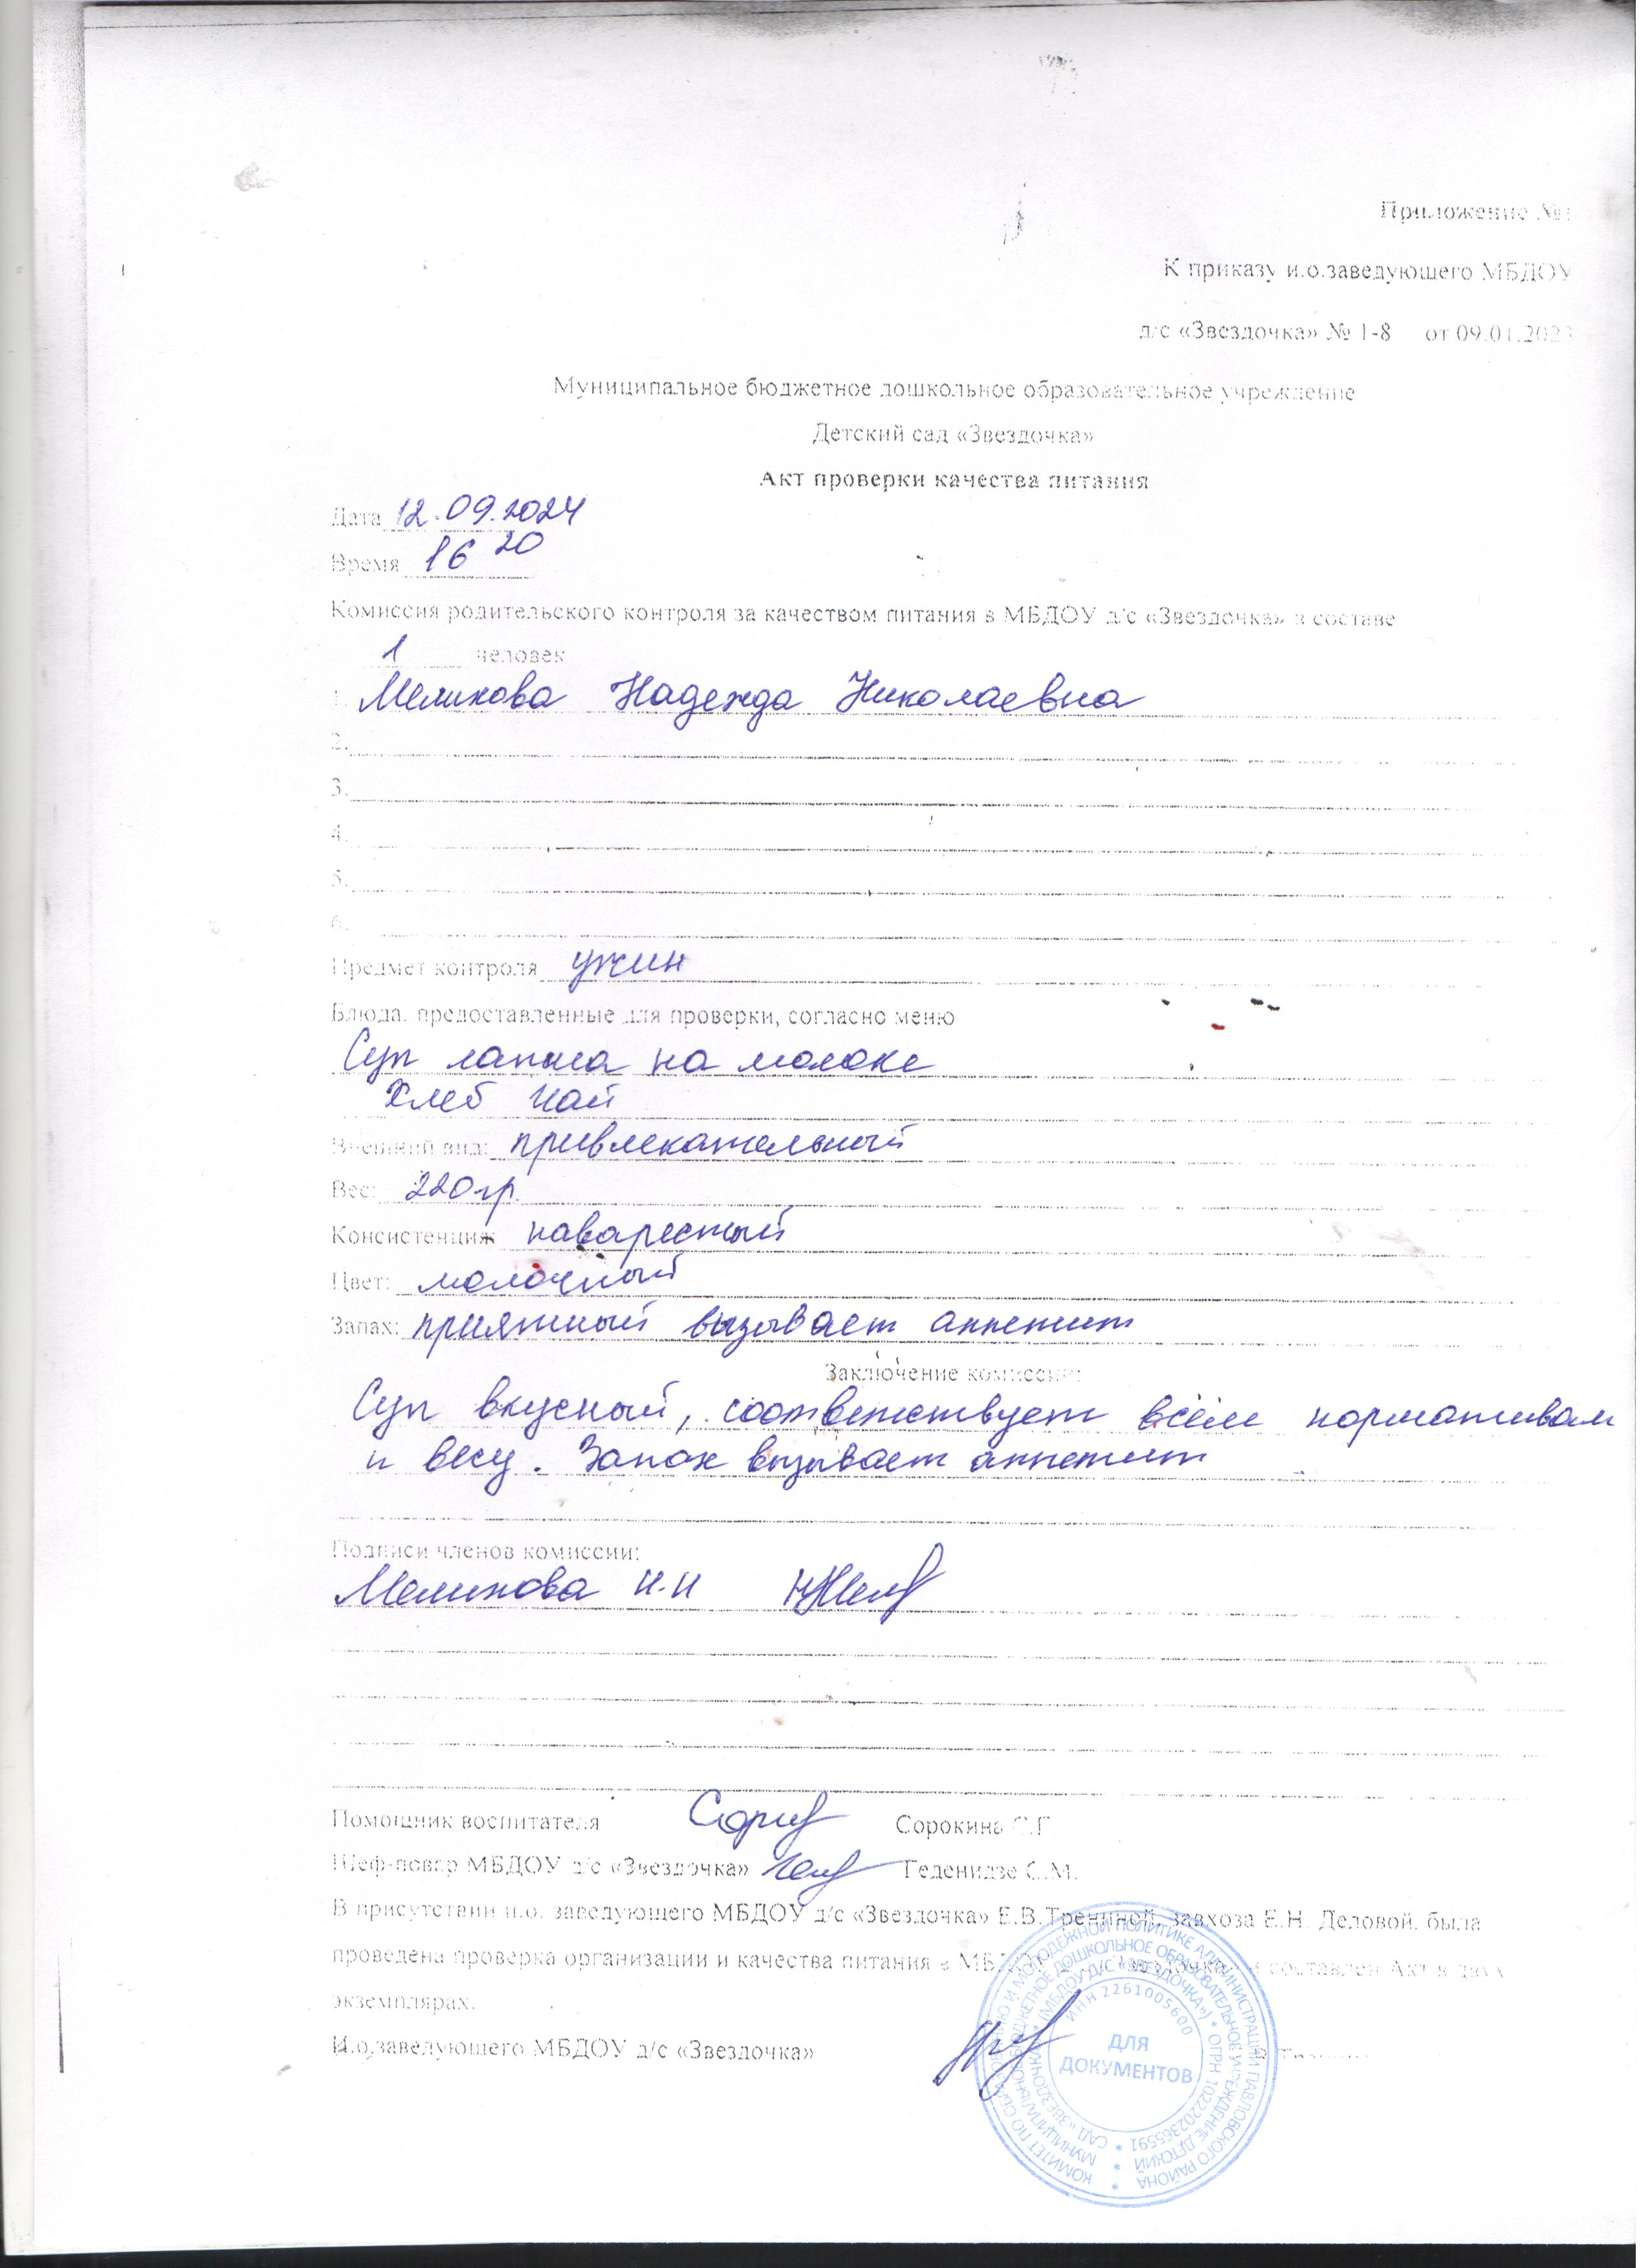 Приложение №1
К приказу и.о.заведующего МБДОУ
д/с «Звездочка» № 1-8 от 09.01.2023
Муниципальное бюджетное дошкольное образовательное учреждение
Детский сад «Звездочка»
Акт проверки качества питания
Дата 12.09.2024
Время 16 20
Комиссия родительского контроля за качеством питания в МБДОУ д/с «Звездочка» в составе
1 человек
1. Меликова Надежда Николаевна
2.
3.
4.
5.
6.
Предмет контроля ужин
Блюда, предоставленные для проверки, согласно меню
Суп лапша на молоке
Хлеб чай
Внешний вид: привлекательный
Вес: 220 гр.
Консистенция: наваристый
Цвет: молочный
Запах: приятный вызывает аппетит
Заключение комиссии:
Суп вкусный, соответствует всем нормативам
и весу. Запах вызывает аппетит
Подписи членов комиссии:
Меликова Н.Н
Помощник воспитателя Сорокина С.Г.
Шеф-повар МБДОУ д/с «Звездочка» Геденидзе С.М.
В присутствии и.о. заведующего МБДОУ д/с «Звездочка» Е.В.Трениной, завхоза Е.Н. Деловой, была
проведена проверка организации и качества питания в МБДОУ д/с «Звездочка» и составлен Акт в двух
экземплярах.
И.о.заведующего МБДОУ д/с «Звездочка»
КОМИТЕТ ПО ОБРАЗОВАНИЮ И МОЛОДЕЖНОЙ ПОЛИТИКЕ АДМИНИСТРАЦИИ ПАВЛОВСКОГО РАЙОНА
МУНИЦИПАЛЬНОЕ БЮДЖЕТНОЕ ДОШКОЛЬНОЕ ОБРАЗОВАТЕЛЬНОЕ УЧРЕЖДЕНИЕ ДЕТСКИЙ
САД «ЗВЕЗДОЧКА» (МБДОУ Д/С «ЗВЕЗДОЧКА») * ОГРН 1022202365591
ИНН 2261005600
ДЛЯ
ДОКУМЕНТОВ